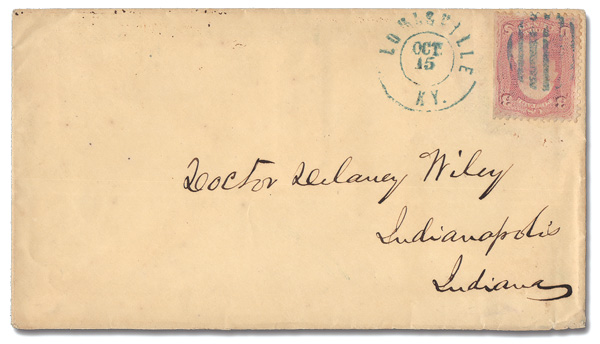 LOUISVILLE
OCT.
15
KY.
3 3
Doctor Delaney Wiley
Indianapolis
Indiana